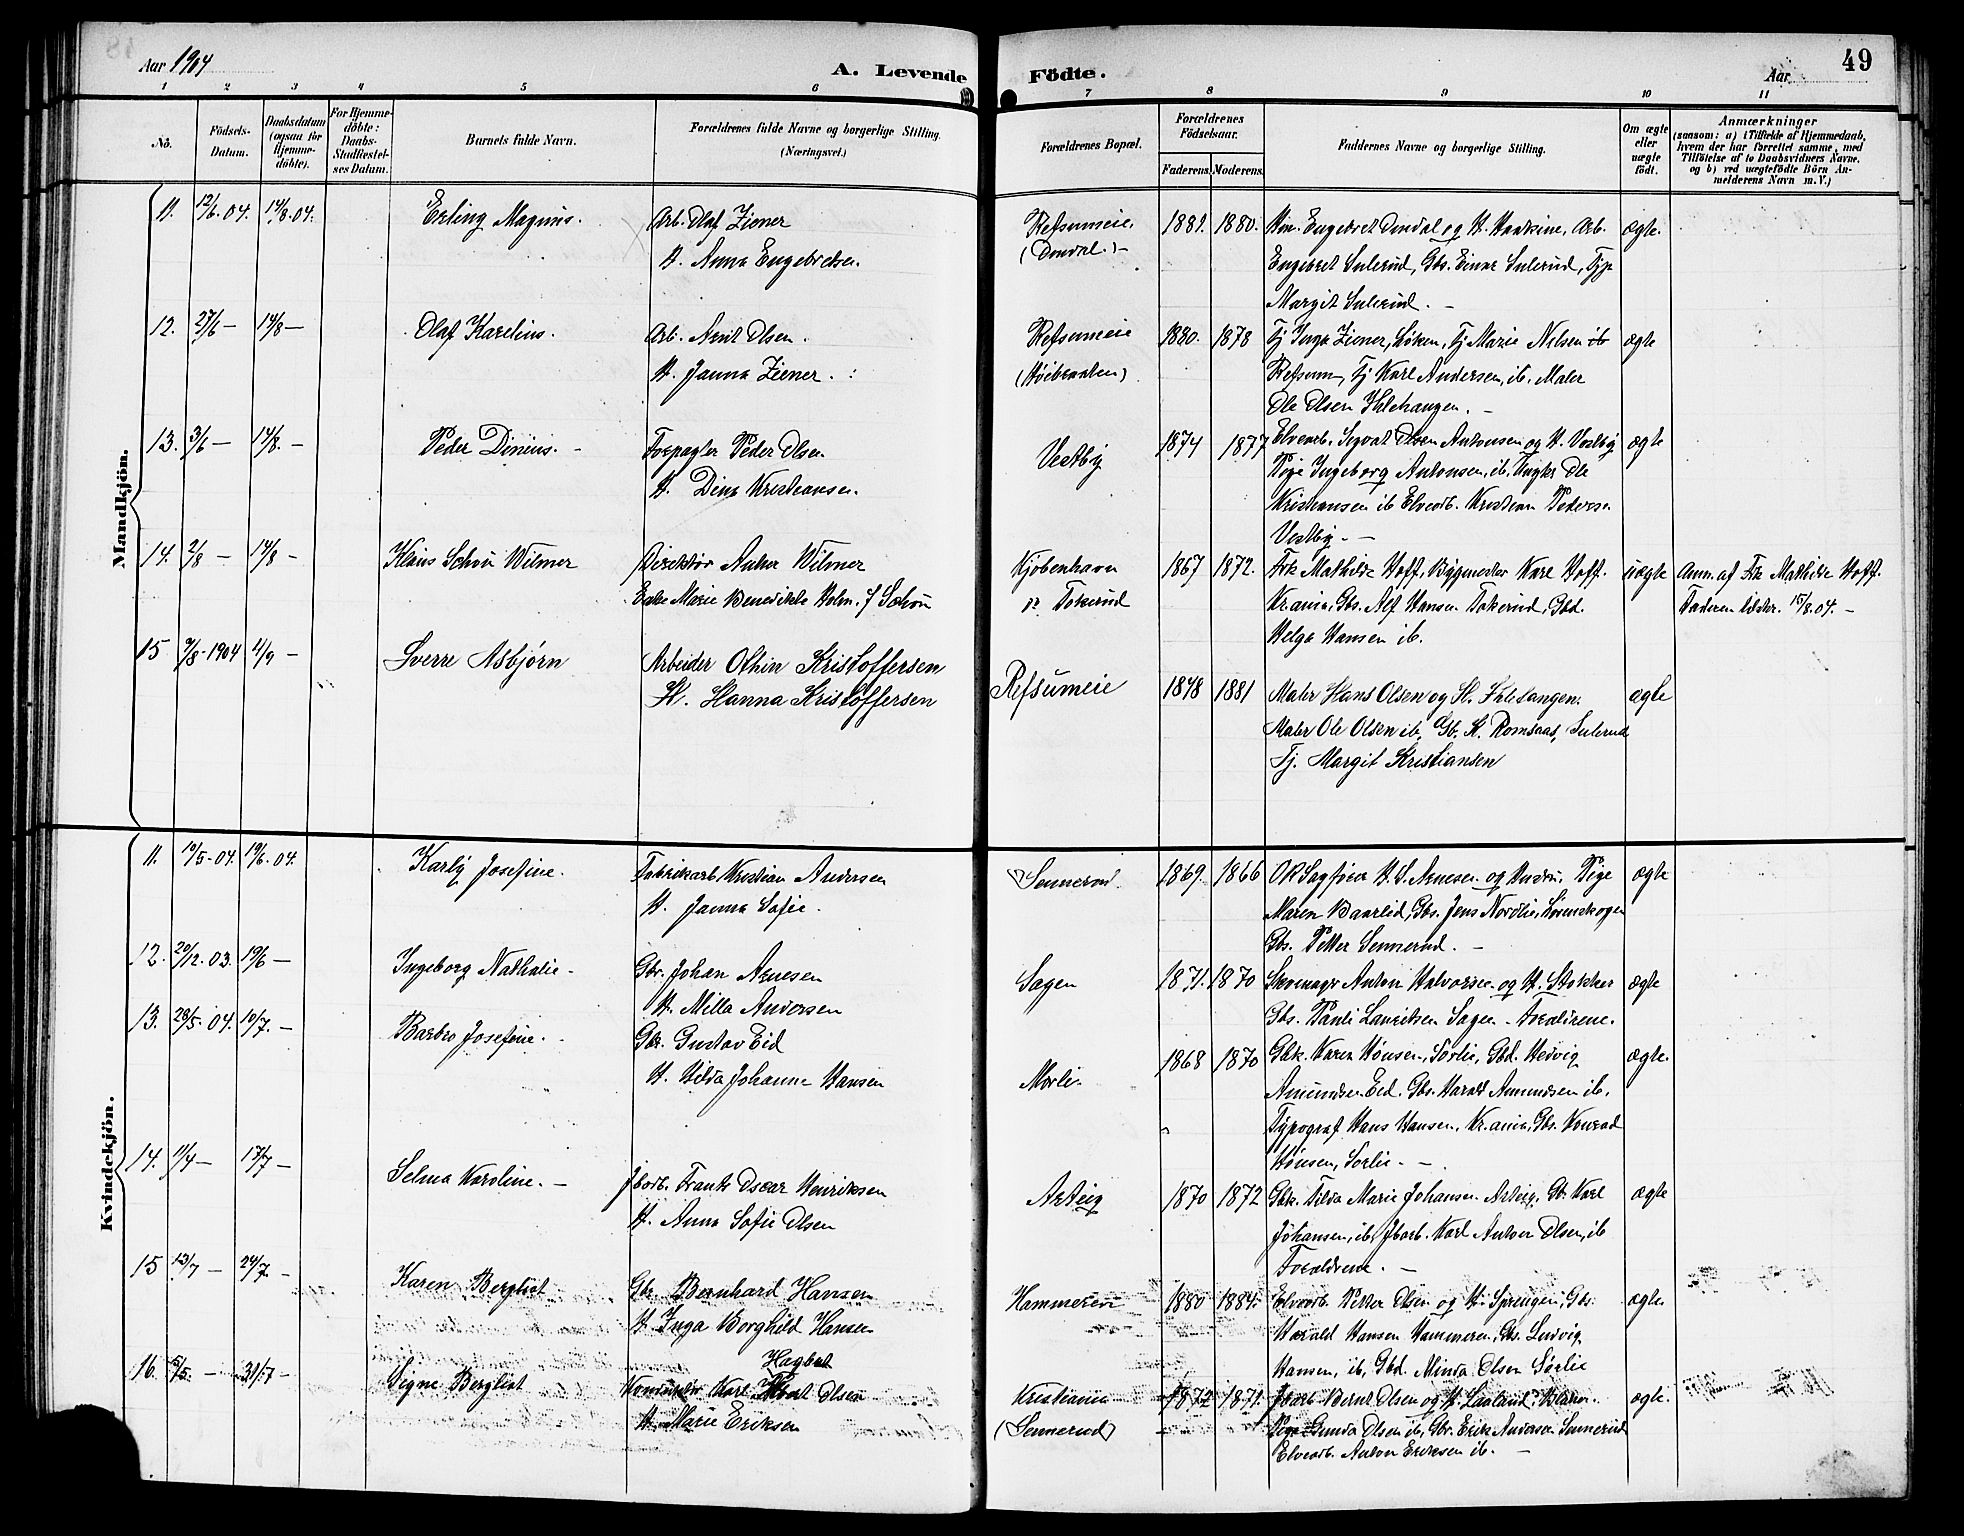 Aar 1904
A. Levende
Födte.
Aar
49
1 2 3 4 5 6 7 8 9 10 11
No.
Födsels-Datum.
Daabsdatum (ogsaa för Hjemme-döbte).
For Hjemme-döbte: Daabs-Stadfæstel-ses Datum.
Barnets fulde Navn.
Forældrenes fulde Navne og borgerlige Stilling. (Næringsvei.)
Forældrenes Bopæl.
Forældrenes Födselsaar.
Faderens. Moderens.
Faddernes Navne og borgerlige Stilling.
Om ægte eller uægte födt.
Anmærkninger
(saasom: a) i Tilfælde af Hjemmedaab, hvem der har forrettet samme, med Tilföielse af to Daabsvidners Navne, og b) ved uægtefödte Börn An-melderens Navn m. V.)
Mandkjön.
11. 12/6.04. 14/8.04. Erling Magnus. Arb. Olaf Ziener
H. Anna Engebretsen.
Refsumeie. (Dondal.)-
1881. 1880.
Hm. Engebret Dondal og H. Hanksine, Arb.
Engebret Sulerud, Gbs. Einar Sulerud, Tjp
Margit Sulerud. -
ægte.
12. 27/6 - 14/8 - Olaf Karelius. Arb. Arnt Olsen.
H. Janna Ziener.
Refsumeie (Höibraaten)
1880. 1878
Tj Inga Ziener, Löken, Tj Marie Nilsen ib
Refsum, Tj Karl Andersen, ib. Maler
Ole Olsen Ihlehaugen. -
ægte
13. 3/6 - 14/8. - Peder Dinius. - Forpagter Peder Olsen
H. Dina Kristiansen.
Vestby
1874 1877
Elvearb. Sigvat Olsen Antonsen og H. Vestby
Pige Ingeborg Antonsen, ib. Ungkr Ole
Kristiansen ib Elvearb. Kristian Pedersen
Vestby. -
ægte
14. 2/8 - 14/8 - Klaus Schou Wilmer Direktör Anker Wilmer
Enke Marie Benedikte Holm. f Schou
Kjöbenhavn
pr Tokerud
1867 1872.
Frk Mathilde Hoff, Bygmester Karl Hoff.
Kr.ania, Gbs. Alf Hansen Tokerud, Gbd.
Helga Hansen ib.
uægte
Anm. af Frk Mathilde Hoff.
Faderen 15/8.04. -
15 9/8-1904 4/9 - Sverre Asbjörn Arbeider Othin Kristoffersen
H. Hanna Kristoffersen
Refsumeie
1878 1881
Maler Hans Olsen og H. Ihlehangen.
Maler Ole Olsen ib, Gb. K. Romsaas, Sulerud
Tj. Margit Kristiansen
ægte
Kvindekjön.
11. 19/5-04. 19/6-04 Karly Josefine. Fabrikarb. Kristian Andersen
H. Janna Sofie.
Sennerud.
1869. 1866
OR Sagförer H. S. Arnesen og Hustru, Pige
Maren Baarlid, Gbs. Jens Nordlie, Lörenskogen
Gbs. Petter Sennerud. -
ægte
12. 20/12.03. 19/6 - Ingeborg Nathalie - Gbr. Johan Arnesen
H. Milla Andersen
Sagen
1871. 1870
Skomager Anton Halvorsen og H. Stokker
Gbs. Pauli Lauritsen Sagen - Forældrene.
ægte
13. 28/5.04. 10/7. - Barbro Josefine. Gbr. Gustav Eid
H. Hilda Johanne Hansen
Morli
1868 1870
Gbk. Karen Hönsen, Sörlie, Gbd. Hedvig
Amundsen Eid. Gbs. Harald Amundsen ib.
Typograf Hans Hansen, Kr.ania, Gbs. Konrad
Hönsen, Sörlie. -
ægte.
14. 11/4 - 17/7 - Selma Karoline. - Jbarb. Frants Oscar Henriksen
H. Anna Sofie Olsen
Arteig
1870 1872
Gbk. Tilda Marie Johansen Arteig, Gb. Karl
Johansen, ib, Jbarb. Karl Anton Olsen, ib
Forældrene. -
ægte
15 13/7 - 24/7 - Karen Bergliot Gbr. Bernhard Hansen
H. Inga Borghild Hansen
Hammeren
1880 1884.
Elvearb. Petter Olsen og H. Sprengen, Gbs.
Harald Hansen Hammeren, Gbs. Ludvig
Hansen, ib, Gbd. Minda Olsen Sörlie
ægte.
16. 5/5. - 31/7 - Signe Bergliot Hagbart
Konduktör Karl Olsen
H. Marie Eriksen
Kristiania
(Sennerud)
1872 1871.
Jbarb. Bernt Olsen og H. Laaland, Blaker.
Pige Gunda Olsen ib, Gbr. Erik Andersen Sennerud
Elvearb. Anton Eriksen ib. -
ægte.